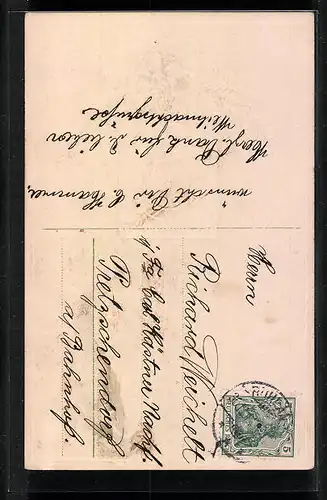 Herzl. Dank für d. lieben
Weihnachtsgrüße
wünscht Dir C. Hammer
Herrn
Richard Weichelt
i/Fa Carl Kästner Nachf.
Pretzschendorf
a/Bahnhof.
5